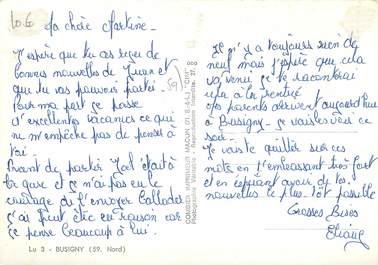 10.G
Ma chère Martine.
J'espère que tu as reçu de
bonnes nouvelles de
que tu vas pouvoir partir.
Pour ma part je passe
d'excellentes vacances ce qui
ne m'empêche pas de penser à
toi.
Avant de partir Joel était à
la gare et je n'ai pas eu le
courage de l'envoyer
j'ai peut etre eu raison car
je pense beaucoup à lui.
Lu 3 - BUSIGNY (59. Nord)
59
COMBIER IMPRIMEUR MACON (71. S.-&-L.) "CIM"
Photographie Véritable - Reproduction Interdite.
Il n'y a toujours rien de
neuf mais j'espère que cela
va venir je te racontrai
cela à la rentrée
mes parents arrivent aujourd'hui
à Busigny - je vais les voir ce
soir.
Je vais te quitter sur ces
mots en t'embrassant très fort
et en espérant avoir de tes
nouvelles le plus tôt possible
Grosses Bises
Eliane